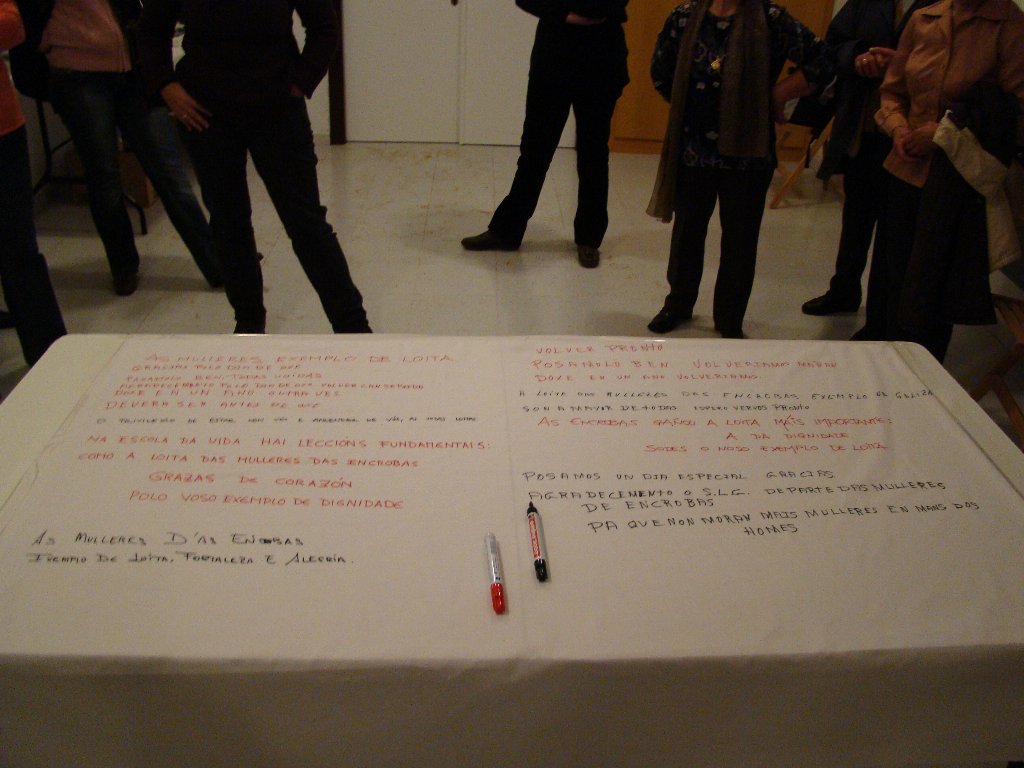 AS MULLERES, EXEMPLO DE LOITA
GRACIAS POLO DIA DE OXE
PASAMOLO BEN TODAS UNIDAS
AGRADECEMENTO POLO DIA DE
DOXE EN UN ANO OUTRA VES
DEVERA SER ANTES DE
O PRIVILEXIO DE ESTAR CON VOS E APRENDER DE VÓS, AS LOITAS
NA ESCOLA DA VIDA HAI LECCIÓNS FUNDAMENTAIS:
COMO A LOITA DAS MULLERES DAS ENCROBAS
GRAZAS DE CORAZÓN
POLO VOSO EXEMPLO DE DIGNIDADE
AS MULLERES D'AS ENCROBAS
EXEMPLO DE LOITA, FORTALEZA E ALEGRÍA.
VOLVER PRONTO
POSAMOLO BEN VOLVERIAMOS MAÑAN
DOXE EN UN ANO VOLVERIAMOS.
A LOITA DAS MULLERES DAS ENCROBAS EXEMPLO EN GALIZA
SON A MAYOR DE TODAS ESPERO VERVOS PRONTO
AS ENCROBAS GAÑOU A LOITA MÁIS IMPORTANTE:
A DA DIGNIDADE.
SODES O NOSO EXEMPLO DE LOITA
POSAMOS UN DIA ESPECIAL GRACIAS
AGRADECEMENTO O S.L.G. DEPARTE DAS MULLERES
DE ENCROBAS
PA QUE NON MORAN MAIS MULLERES EN MANS DOS
HOMES